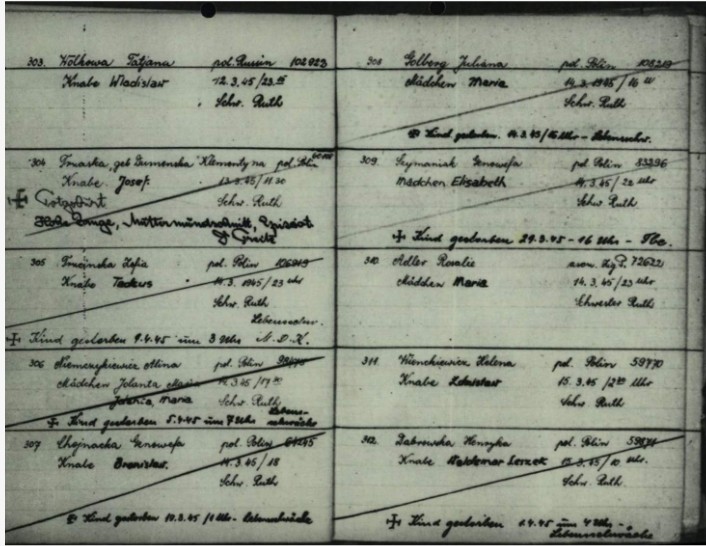 303. Wólkowa Tatjana pol. Russin 102923
Knabe Wladislaw 12.3.45/23
Schw. Ruth
304 geb. Klementyna pol. Polin
Knabe Josef 13.3.45/11
Totgeburt Schw. Ruth
Hohe Zange, Muttermundschnitt,
305 Zofia pol. Polin
Knabe Tadeus 14.3.1945/23 uhr
Schw. Ruth
Lebensschw.
Kind gestorben 9.4.45 um 3 Uhr N.D.K.
306 Niemczykiewicz Alina pol. Polin
Mädchen Jolanta Maria
Maria Schw. Ruth
Kind gestorben 5.4.45 um 7 Uhr Lebensschwäche
307 Chojnacka Genowefa pol. Polin
Knabe Bronislaw. 14.3.45/18
Schw. Ruth
Kind gestorben /1 Uhr - Lebensschwäche
308 Golberg Juliana pol. Polin
Mädchen Maria 14.3.1945/16
Schw. Ruth
Kind gestorben. Uhr - Lebensschw.
309 Szymaniak Genowefa pol. Polin 83296
Mädchen Elisabeth 14.3.45/22 uhr
Schw. Ruth
Kind gestorben 29.3.45 - 16 Uhr - Tbc.
310 Adler Rosalie 72622
Mädchen Maria 14.3.45/23 uhr.
Schwester Ruth
311 Wienckiewicz Helena pol. Polin 59770
Knabe Zdzislaw 15.3.45/2 Uhr
Schw. Ruth
312 Dabrowska Henryka pol. Polin
Knabe Waldemar Leszek 15.3.45/10 uhr.
Schw. Ruth.
Kind gestorben 1.4.45 um 4 Uhr -
Lebensschwäche